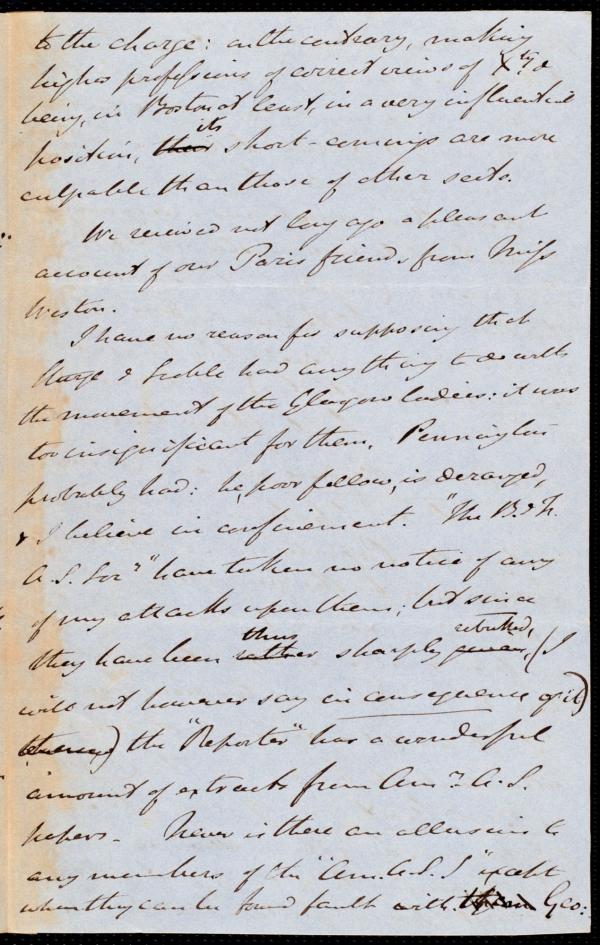 to the charge: on the contrary, making
higher professions of correct views of Xty. &
being, in Boston at least, in a very influential
position, their its short-comings are more
culpable than those of other sects.
We received not long ago a pleasant
account of our Paris friends from Miss
Weston.
I have no reason for supposing that
Sturge & Scoble had anything to do with
the movement of the Glasgow ladies: it was
too insignificant for them. Pennington
probably had: he, poor fellow, is deranged,
& I believe in confinement. "The B. & F.
A. S. Socy" have taken no notice of any
of my attacks upon them; but since
they have been rather thus sharply rebuked, (I
will not however say in consequence of it)
the "Reporter" has a wonderful
amount of extracts from Amn. A. S.
papers - Never is there an allusion to
any members of the "Am. A. S. S" except
when they can be found fault with. Geo: